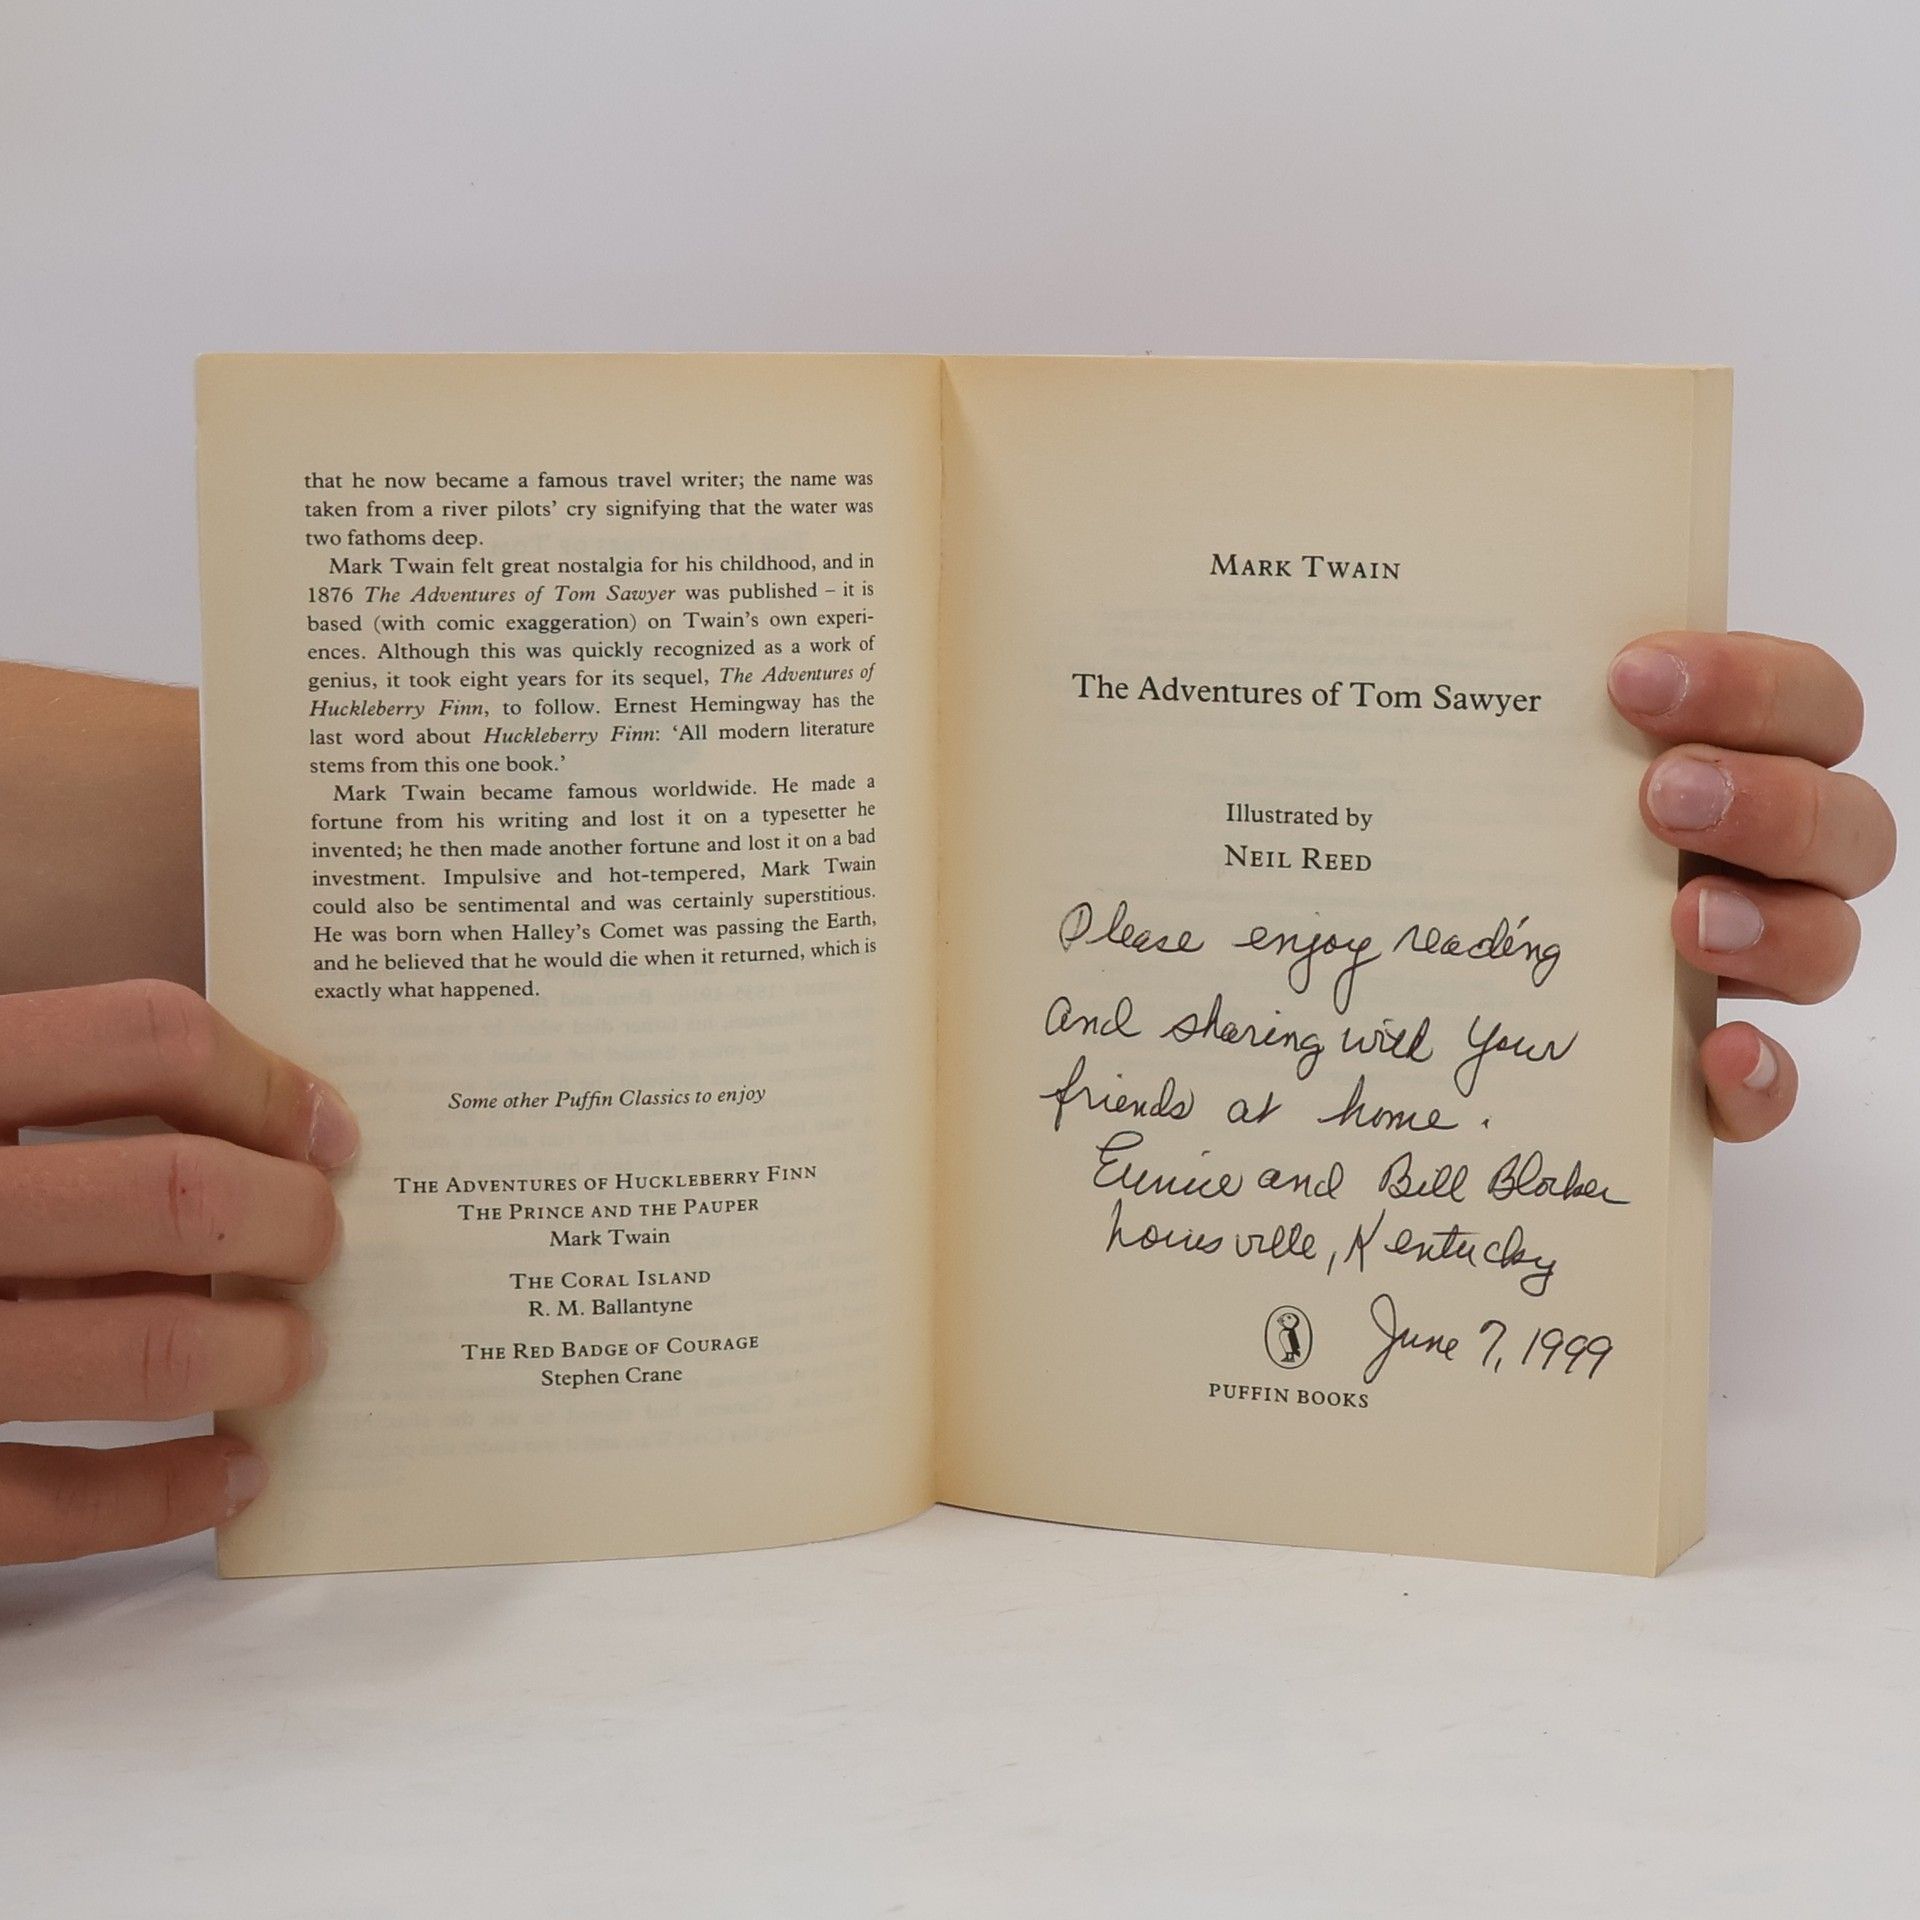 that he now became a famous travel writer; the name was
taken from a river pilots' cry signifying that the water was
two fathoms deep.
Mark Twain felt great nostalgia for his childhood, and in
1876 The Adventures of Tom Sawyer was published – it is
based (with comic exaggeration) on Twain's own experi-
ences. Although this was quickly recognized as a work of
genius, it took eight years for its sequel, The Adventures of
Huckleberry Finn, to follow. Ernest Hemingway has the
last word about Huckleberry Finn: 'All modern literature
stems from this one book.'
Mark Twain became famous worldwide. He made a
fortune from his writing and lost it on a typesetter he
invented; he then made another fortune and lost it on a bad
investment. Impulsive and hot-tempered, Mark Twain
could also be sentimental and was certainly superstitious.
He was born when Halley's Comet was passing the Earth,
and he believed that he would die when it returned, which is
exactly what happened.
Some other Puffin Classics to enjoy
THE ADVENTURES OF HUCKLEBERRY FINN
THE PRINCE AND THE PAUPER
Mark Twain
THE CORAL ISLAND
R. M. Ballantyne
THE RED BADGE OF COURAGE
Stephen Crane
MARK TWAIN
The Adventures of Tom Sawyer
Illustrated by
NEIL REED
Please enjoy reading
and sharing with your
friends at home.
Eunice and Bill Blocker
Louisville, Kentucky
June 7, 1999
PUFFIN BOOKS